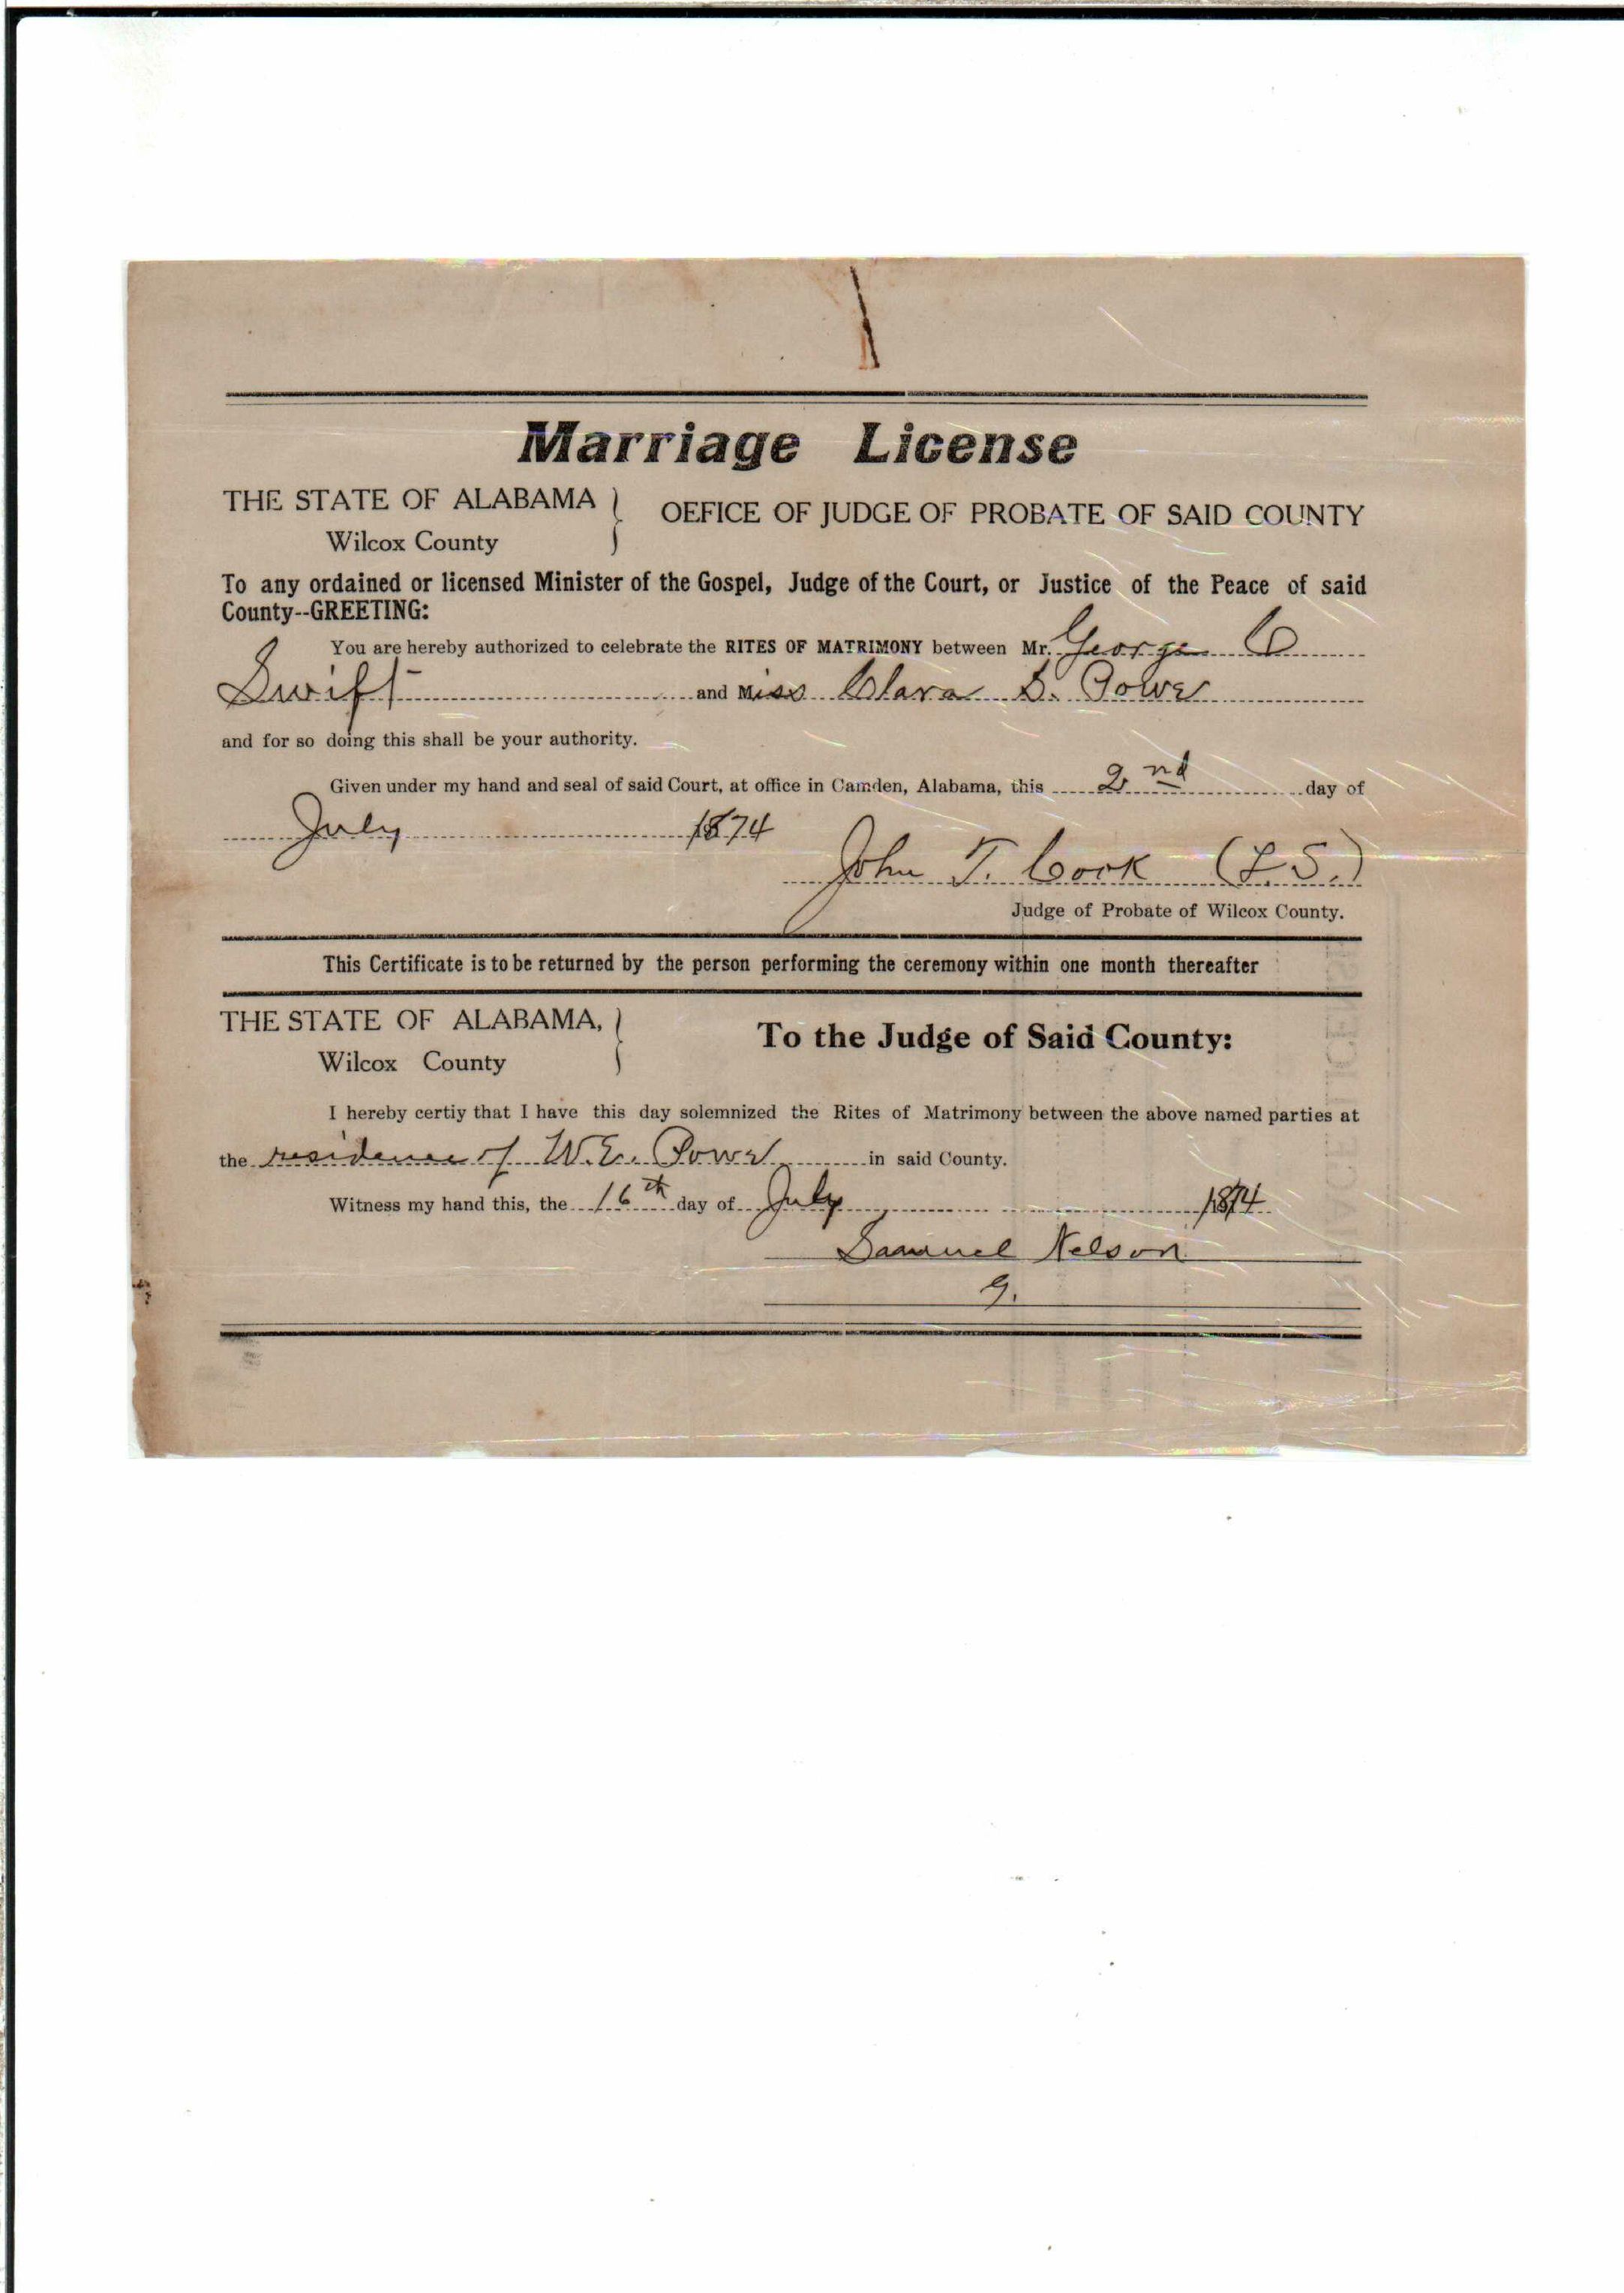 Marriage License
THE STATE OF ALABAMA } OEFICE OF JUDGE OF PROBATE OF SAID COUNTY
Wilcox County
To any ordained or licensed Minister of the Gospel, Judge of the Court, or Justice of the Peace of said
County--GREETING:
You are hereby authorized to celebrate the RITES OF MATRIMONY between Mr. George O
Swift and Miss Clara S. Power
and for so doing this shall be your authority.
Given under my hand and seal of said Court, at office in Camden, Alabama, this 2nd day of
July 1874
John T. Cook (L.S.)
Judge of Probate of Wilcox County.
This Certificate is to be returned by the person performing the ceremony within one month thereafter
THE STATE OF ALABAMA, } To the Judge of Said County:
Wilcox County
I hereby certiy that I have this day solemnized the Rites of Matrimony between the above named parties at
the residence of W.E. Power in said County.
Witness my hand this, the 16th day of July 1874
Samuel Nelson